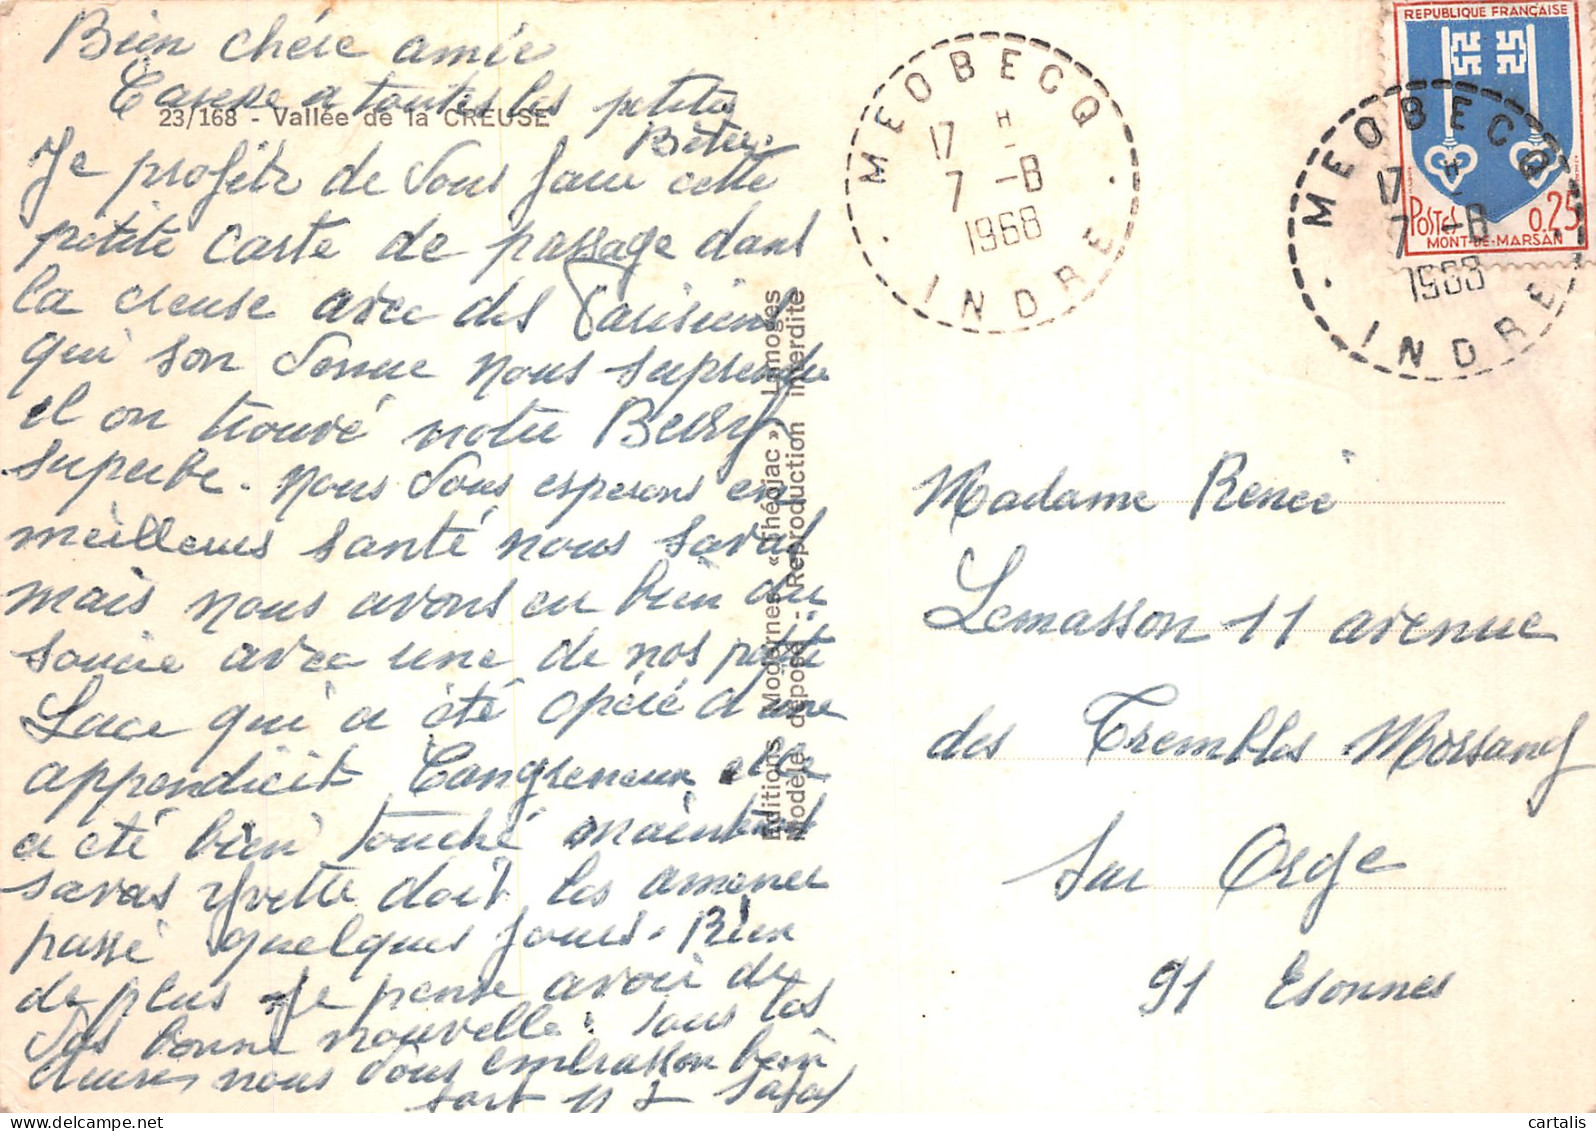 Bien chére amie
Carese a toutes les petites
Bêtes.
23/168 - Vallée de la CREUSE
Je profite de vous faire cette
petite carte de passage dans
la creuse avec des Parisiens
qui son venue nous suprendre
il on trouvé notre Berry
superbe. nous vous esperons en
meilleures santé nous saval
mais nous avons eu bien du
soucie avec une de nos petite
Luce qui a été opéré d'une
appendicit Cangreneux elle
a été bien touché maintenant
savas Yvette doit les amener
passé quelques jours. Rien
de plus Je pense avoir de
vos bonne nouvelle. tous
nous vous embrasson bien
fort
Editions Modernes « Théojac » Limoges
Modèle déposé - Reproduction interdite
MEOBECQ
17 H
7 -8
1968
INDRE
REPUBLIQUE FRANÇAISE
POSTES 0.25
MONT-DE-MARSAN
MEOBECQ
17 H
7 -8
1968
INDRE
Madame Renée
Lemasson 11 avenue
des Trembles Morsang
sur Orge
91 Esonnes
cartalis